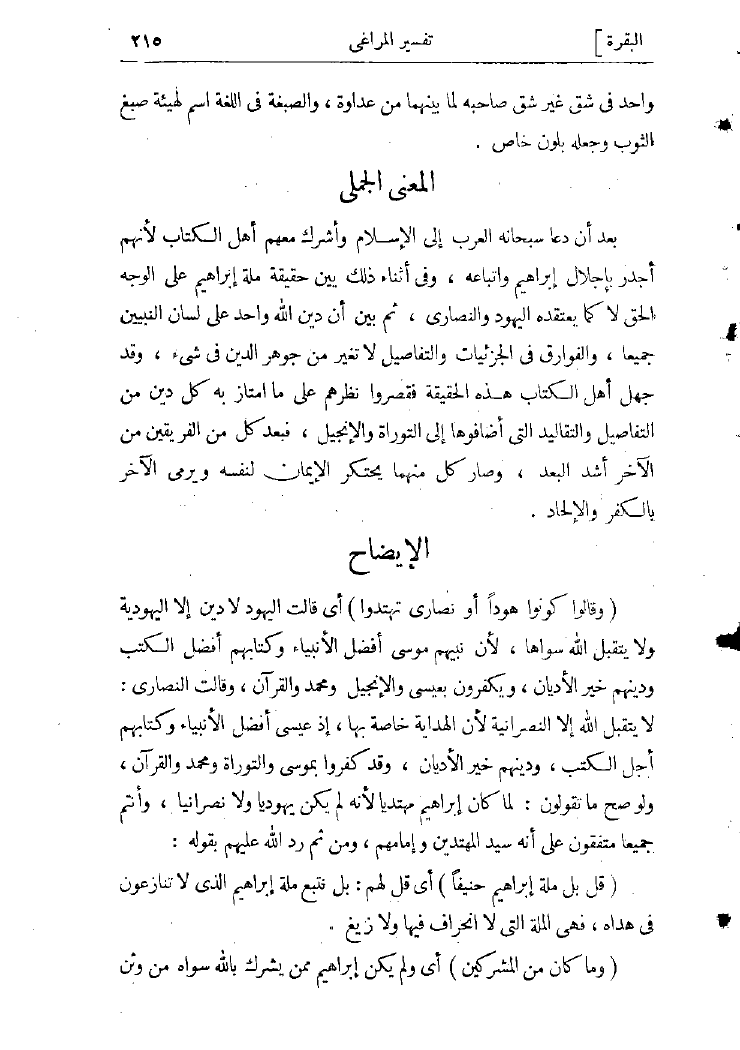 البقرة ] تفسير المراغى ٢١٥
واحد فى شق غير شق صاحبه لما بينهما من عداوة ، والصبغة فى اللغة اسم لهيئة صبغ
الثوب وجعله بلون خاص .
المعنى الجملى
بعد أن دعا سبحانه العرب إلى الإسلام وأشرك معهم أهل الكتاب لأنهم
أجدر بإجلال إبراهيم واتباعه ، وفى أثناء ذلك بين حقيقة ملة إبراهيم على الوجه
الحق لا كما يعتقده اليهود والنصارى ، ثم بين أن دين الله واحد على لسان النبيين
جميعا ، والفوارق فى الجزئيات والتفاصيل لا تغير من جوهر الدين فى شىء ، وقد
جهل أهل الكتاب هذه الحقيقة فقصروا نظرهم على ما امتاز به كل دين من
التفاصيل والتقاليد التى أضافوها إلى التوراة والإنجيل ، فبعد كل من الفريقين من
الآخر أشد البعد ، وصار كل منهما يحتكر الإيمان لنفسه ويرمى الآخر
بالكفر والإلحاد .
الإيضاح
( وقالوا كونوا هوداً أو نصارى تهتدوا ) أى قالت اليهود لا دين إلا اليهودية
ولا يتقبل الله سواها ، لأن نبيهم موسى أفضل الأنبياء وكتابهم أفضل الكتب
ودينهم خير الأديان ، ويكفرون بعيسى والإنجيل ومحمد والقرآن ، وقالت النصارى :
لا يتقبل الله إلا النصرانية لأن الهداية خاصة بها ، إذ عيسى أفضل الأنبياء وكتابهم
أجل الكتب ، ودينهم خير الأديان ، وقد كفروا بموسى والتوراة ومحمد والقرآن ،
ولو صح ما تقولون : لما كان إبراهيم مهتديا لأنه لم يكن يهوديا ولا نصرانيا ، وأنتم
جميعا متفقون على أنه سيد المهتدين وإمامهم ، ومن ثم رد الله عليهم بقوله :
( قل بل ملة إبراهيم حنيفاً ) أى قل لهم : بل نتبع ملة إبراهيم الذى لا تنازعون
فى هداه ، فهى الملة التى لا انحراف فيها ولا زيغ .
( وما كان من المشركين ) أى ولم يكن إبراهيم ممن يشرك بالله سواه من وثن